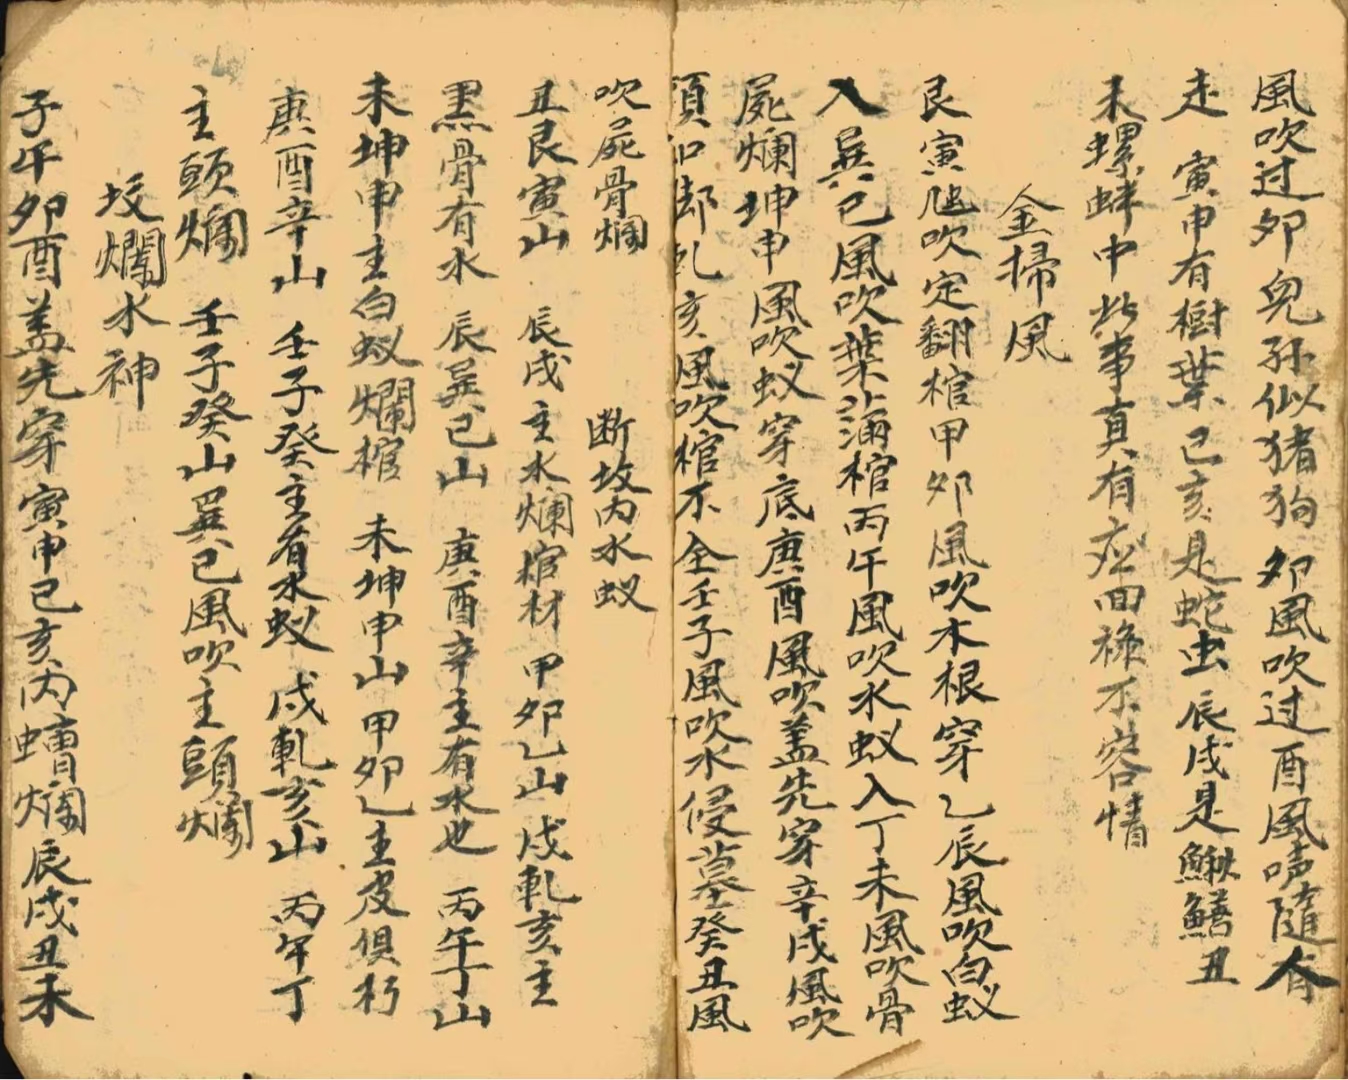 風吹过夘兒孫似猪狗 夘風吹过酉風吹隨人
走 寅申有樹葉已亥是蛇虫辰戌是鰍鱔丑
未螺蚌中此事真有应回禄不容情
金掃風
艮寅風吹定翻棺甲夘風吹木根穿乙辰風吹白蚁
入巽已風吹葉蒲棺丙午風吹水蚁入丁未風吹骨
屍爛坤申風吹蚁穿底庚酉風吹盖先穿辛戌風吹
須知却乹亥風吹棺不全壬子風吹水侵墓癸丑風
吹屍骨爛 断坟内水蚁
丑艮寅山 辰戌主水爛棺材 甲夘乙山戌乹亥主
黑骨有水 辰巽已山 庚酉辛主有水也 丙午丁山
未坤申主白蚁爛棺 未坤申山甲夘乙主皮俱朽
庚酉辛山 壬子癸主有水蚁 戌乹亥山 丙午丁
主頭爛 壬子癸山巽已風吹主頭爛
坟爛水神
子午夘酉盖先穿寅申已亥内蟲爛辰戌丑未